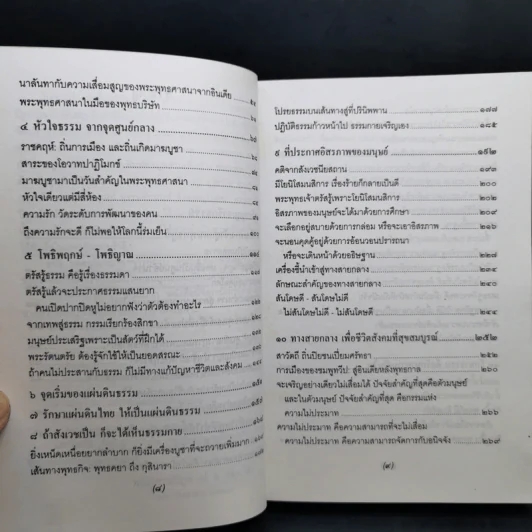 นาลันทากับความเสื่อมสูญของพระพุทธศาสนาจากอินเดีย
พระพุทธศาสนาในมือของพุทธบริษัท
๔ หัวใจธรรม จากจุดศูนย์กลาง
ราชคฤห์: ถิ่นการเมือง และถิ่นเกิดมาฆบูชา
สาระของโอวาทปาฏิโมกข์
มาฆบูชามาเป็นวันสำคัญในพระพุทธศาสนา
หัวใจเดียวแต่มีสี่ห้อง
ความรัก วัดระดับการพัฒนาของคน
ถึงความรักจะดี ก็ไม่พอให้โลกนี้ร่มเย็น
๕ โพธิพฤกษ์ - โพธิญาณ
ตรัสรู้ธรรม คือรู้เรื่องธรรมดา
ตรัสรู้แล้วจะประกาศธรรมแสนยาก
คนเปิดปากปิดหูไม่อยากฟังว่าตัวต้องทำอะไร
จากเทพสู่ธรรม กรรมเรียกร้องสิกขา
มนุษย์ประเสริฐเพราะเป็นสัตว์ที่ฝึกได้
พระรัตนตรัย ต้องรู้จักใช้ให้เป็นยอดสรณะ
ถ้าคนไม่ประสานกับธรรม ก็ไม่มีทางแก้ปัญหาชีวิตและสังคม
๖ จุดเริ่มของแผ่นดินธรรม
๗ รักษาแผ่นดินไทย ให้เป็นแผ่นดินธรรม
๘ ถ้าสังเวชเป็น ก็จะได้เห็นธรรมกาย
ยิ่งเหน็ดเหนื่อยยากลำบาก ก็ยิ่งมีเครื่องบูชาที่จะถวายเพิ่มมาก
เส้นทางพุทธกิจ: พุทธคยา ถึง กุสินารา
(๘)
โปรยธรรมบนเส้นทางสู่ที่ปรินิพพาน ๑๗๘
ปฏิบัติธรรมก้าวหน้าไป ธรรมกายเจริญเอง ๑๘๕
๙ ที่ประกาศอิสรภาพของมนุษย์ ๑๙๒
คติจากสังเวชนียสถาน ๑๙๓
มีโยนิโสมนสิการ เรื่องร้ายก็กลายเป็นดี ๒๐๐
พระพุทธเจ้าตรัสรู้เพราะโยนิโสมนสิการ ๒๐๓
อิสรภาพของมนุษย์จะได้มาด้วยการศึกษา ๒๐๙
จะเลือกอยู่สบายด้วยการกล่อม หรือจะเอาอิสรภาพ
จะนอนคุดคู้อยู่ด้วยการอ้อนวอนปรารถนา
หรือจะเดินหน้าด้วยอธิษฐาน ๒๒๗
เครื่องชี้นำเข้าสู่ทางสายกลาง ๒๓๔
ลักษณะสำคัญของทางสายกลาง ๒๔๐
สันโดษดี - สันโดษไม่ดี
ไม่สันโดษไม่ดี - ไม่สันโดษดี ๒๔๔
๑๐ ทางสายกลาง เพื่อชีวิตสังคมที่สุขสมบูรณ์ ๒๕๒
สาวัตถี ถิ่นปิยชนเปี่ยมศรัทธา
การเมืองของชมพูทวีป: สู่อินเดียหลังพุทธกาล ๒๖๐
จะเจริญอย่างเดียวไม่เสื่อมได้ ปัจจัยสำคัญที่สุดคือตัวมนุษย์
และในตัวมนุษย์ ปัจจัยสำคัญที่สุด คือกรรมแห่ง
ความไม่ประมาท ๒๖๖
ความไม่ประมาท คือความสามารถที่จะไม่เสื่อม
ความไม่ประมาท คือความสามารถจัดการกับอนิจจัง ๒๖๙
(๙)